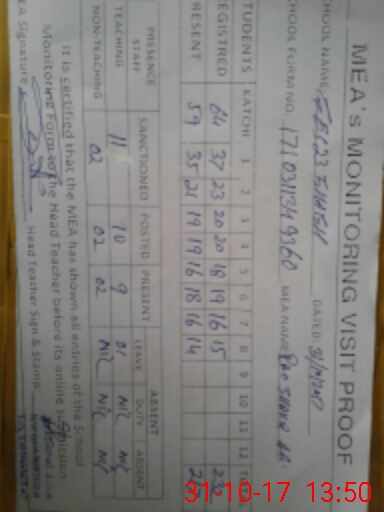 MEA's MONITORING VISIT PROOF
SCHOOL NAME: DATED: 31/10/2017
SCHOOL FORM NO. MEA NAME:
STUDENTS KATCHI 1 2 3 4 5 6 7 8 9 10 11 12 TOTAL
REGISTRED 64 37 23 20 20 18 19 16 15 232
PRESENT 59 35 21 19 19 16 18 16 14
PRESENCE ABSENT
STAFF SANCTIONED POSTED PRESENT LEAVE DUTY ABSENT
TEACHING 11 10 9 01 NIL NIL
NON-TEACHING 02 02 02 NIL NIL NIL
It is certified that the MEA has shown all entries of the School
Monitoring Form to the Head Teacher before its online submission
MEA Signature Head Teacher Sign & Stamp
31-10-17 13:50